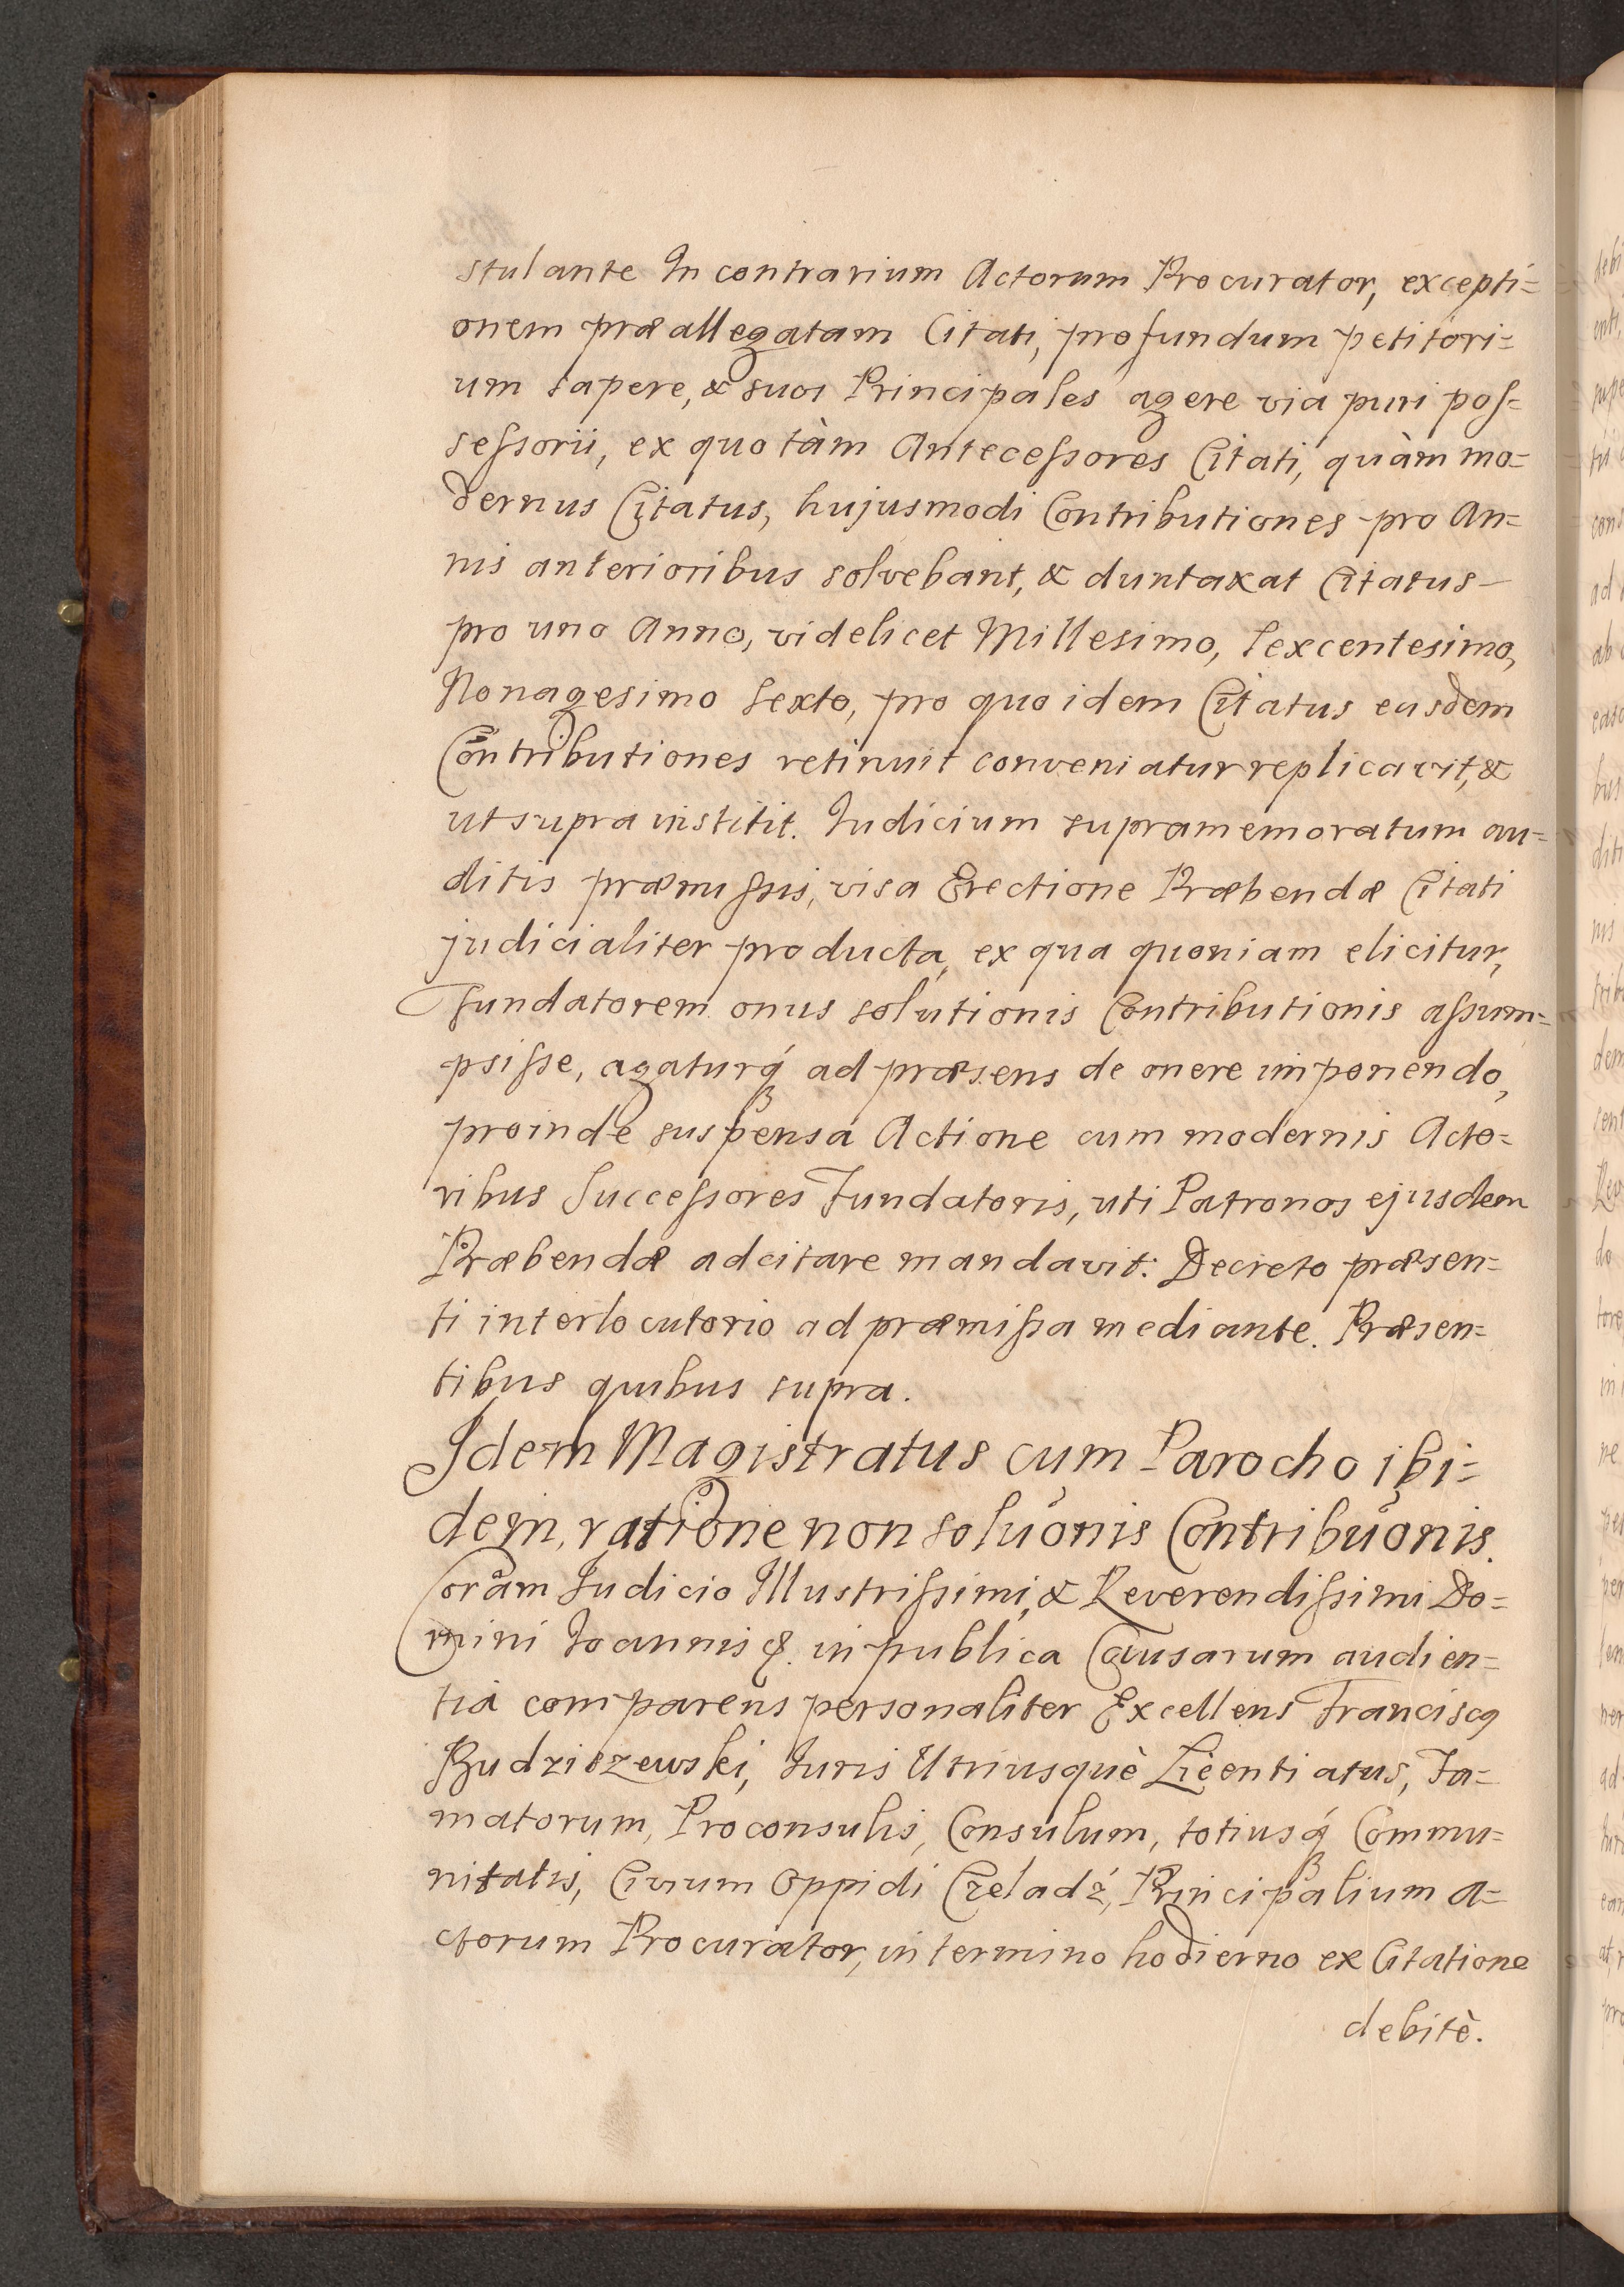 stulante In contrarium Actorum Procurator, excepti=
onem præallegatam Citati, profundum petitori=
um sapere, & suos Principales agere via puri pos=
sessorii, ex quo tàm Antecessores Citati, quàm mo=
dernus Citatus, hujusmodi Contributiones pro An=
nis anterioribus solvebant, & duntaxat Citatus
pro uno Anno, videlicet Millesimo, Sexcentesimo,
Nonagesimo Sexto, pro quo idem Citatus easdem
Contributiones retinuit conveniatur replicavit, &
ut supra institit. Iudicium supramemoratum au=
ditis præmissis, visa Erectione Præbendæ Citati
judicialiter producta, ex qua quoniam elicitur,
Fundatorem onus solutionis Contributionis assum=
psisse, agaturq́ ad præsens de onere imponendo,
proinde suspensa Actione cum modernis Acto=
ribus Successores Fundatoris, uti Patronos ejusdem
Præbendæ adcitare mandavit: Decreto præsen=
ti interlocutorio ad præmissa mediante. Præsen=
tibus quibus supra.
Idem Magistratus cum Parocho ibi=
dem, ratione non soluõnis Contribuõnis.
Coram Iudicio Illustrissimi, & Reverendissimi Do=
mini Ioannis &. in publica Causarum audien=
tia comparens personaliter Excellens Franciscq
Budziszewski, Iuris Utriusquè Licentiatus, Fa=
matorum, Proconsulis, Consulum, totiusq́ Commu=
nitatis, Civium Oppidi Czeladź, Principalium A=
ctorum Procurator, in termino hodierno ex Citatione
debitè.